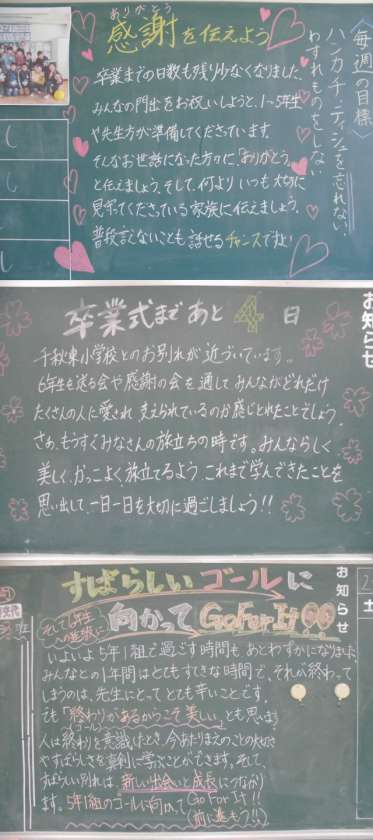 ありがとう
感謝を伝えよう
卒業までの日数も残り少なくなりました。
みんなの門出をお祝いしようと、1~5年生
や先生方が準備してくださっています。
そんなお世話になった方々に、「ありがとう」
と伝えましょう。そして、何よりいつも大切に
見守ってくださっている家族に伝えましょう。
普段言えないことも話せるチャンスですよ!
〈毎週の目標〉
ハンカチ・ティシュを忘れない。
わすれものをしない
お知らせ
卒業式まであと4日
千秋東小学校とのお別れが近づいています。
6年生を送る会や感謝の会を通してみんながどれだけ
たくさんの人に愛され、支えられているのか感じとれたことでしょう。
さあ、もうすぐみなさんの旅立ちの時です。みんならしく
美しく、かっこよく、旅立てるよう、これまで学んできたことを
思い出して、一日一日を大切に過ごしましょう!!
お知らせ
すばらしいゴールに
向かって Go For It
そして6年生
への進級に
いよいよ5年1組で過ごす時間もあとわずかになりました。
みんなとの1年間はとてもすてきな時間で、それが終わって
しまうのは、先生にとってとても辛いことです。
でも「終わりがあるからこそ美しい」とも思います
(ゴール)
人は終わりを意識したとき、今あたりまえのことの大切さ
やすばらしさを真剣に学ぶことができます。そして、
すばらしい別れは、新しい出会いと成長につながり
ます。5年1組のゴールに向かって Go For It!!
(前に進もう!!)
土